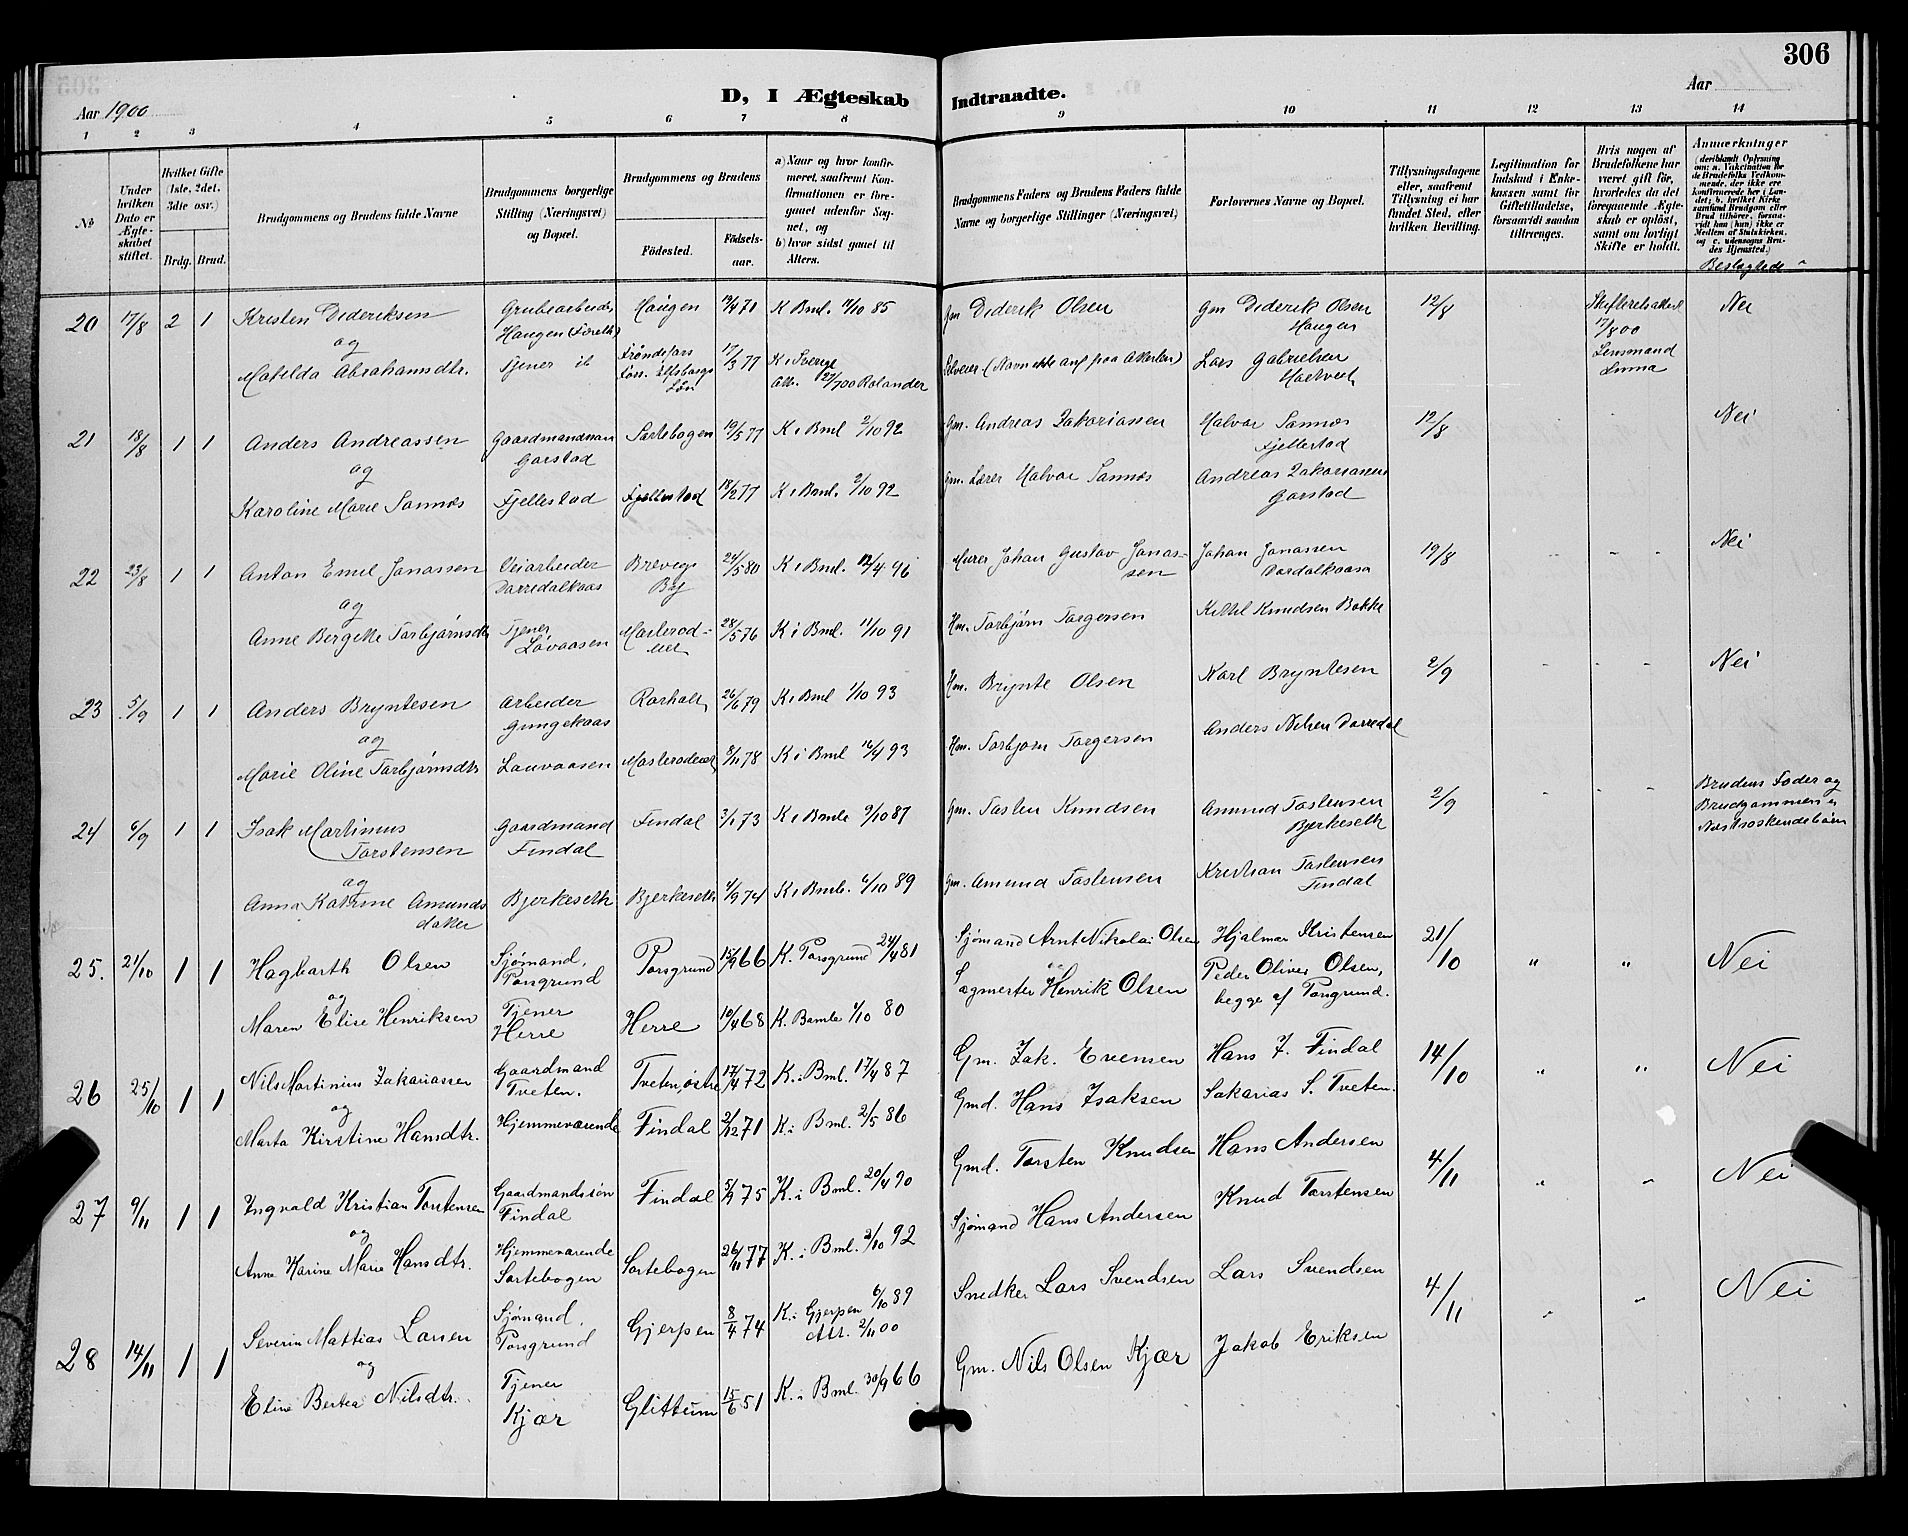 306
D, I Ægteskab Indtraadte.
Aar 1900
Aar
1 2 3 4 5 6 7 8 9 10 11 12 13 14
No
Under hvilken Dato er Ægteskabet stiftet.
Hvilket Gifte (1ste, 2det, 3die osv.)
Brdg. Brud.
Brudgommens og Brudens fulde Navne
Brudgommens borgerlige Stilling (Næringsvei) og Bopæl.
Brudgommens og Brudens
Födested.
Födsels-aar.
a) Naar og hvor konfirmeret, saafremt Konfirmationen er foregaaet udenfor Sognet, og
b) hvor sidst gaaet til Alters.
Brudgommens Faders og Brudens Faders fulde Navne og borgerlige Stillinger (Næringsvei)
Forlovernes Navne og Bopæl.
Tillysningsdagene eller, saafremt Tillysning ei har fundet Sted, efter hvilken Bevilling.
Legitimation for Indskud i Enkekassen samt for Giftetilladelse, forsaavidt saadan tiltrænges.
Hvis nogen af Brudefolkene har været gift før, hvorledes da det foregaaende Ægteskab er opløst, samt om lovligt Skifte er holdt.
Anmærkninger
(deriblandt Oplysning om: a. Vakcination for de Brudefolks Vedkommende, der ikke ere konfirmerede her i Landet; b. hvilket Kirkesamfund Brudgom eller Brud tilhører, forsaavidt han (hun) ikke er Medlem af Statskirken, og c. udensogns Brudes Hjemsted.)
Beslægtede
20 17/8 2 1 Kristen Dideriksen Grubearbeider Haugen Haugen 7/4 71 K Bml. 4/10 85 Gm Diderik Olsen Gm Diderik Olsen Haugen 12/8 17/8 00 Lensmand Nei
og
Matilda Abrahamsdtr. Tjener ib 17/3 77 K i Sverige Alt. 27/7 00 Rolander (Navn ikke anf paa Attesten) Lars Gabrielsen
21 18/8 1 1 Anders Andreassen Gaardmandssøn Garstad Sortebogen 19/5 77 K i Bml 2/10 92 Gm. Andreas Zakariassen Halvor Sannes Fjellestad 12/8 Nei
og
Karoline Marie Sannes Fjellestad Fjellestad 18/2 77 K i Bml. 2/10 92 Gm. Lærer Halvor Sannes Andreas Zakariassen Garstad
22 23/8 1 1 Anton Emil Jonassen Veiarbeider Dørredalkaas Brevigs By 24/5 80 K i Bml. 12/4 96 Murer Johan Gustav Jonassen Johan Jonassen 19/8 Nei
og
Anne Bergitte Torbjørnsdtr Tjener Løvaasen 28/5 76 K i Bml. 11/10 91 Hm. Torbjørn Torgersen Kittil Knudsen Bakke
23 5/9 1 1 Anders Bryntesen Arbeider Gungekaas Rørholt 26/6 79 K i Bml 1/10 93 Hm. Brynte Olsen Karl Bryntesen 2/9 Nei
og
Marie Oline Torbjørnsdtr Lauvaasen 8/11 78 K i Bml 16/4 93 Hm. Torbjørn Torgersen Anders Nilsen Dørredal
24 6/9 1 1 Isak Martinius Torstensen Gaardmand Findal Findal 3/1 73 K i Bamle 9/10 87 Gm. Tosten Knudsen Amund Tostensen Bjerkeseth 2/9 Brudens Fader og Brudgommen er
og
Anna Katrine Amundsdatter Bjerkeseth Bjerkeseth 4/9 74 K i Bmb. 6/10 89 Gm. Amund Tostensen Kristian Tostensen Findal
25. 21/10 1 1 Hagbarth Olsen Sjømand, Porsgrund Porsgrund 15/9 66 K. Porsgrund 24/4 81 Sjømand Arnt Nikolai Olsen Hjalmar Kristensen 21/10 " " Nei
og
Maren Elise Henriksen Tjener Herre Herre 10/4 68 K. Bamle 1/10 80 Sagmester Henrik Olsen Peder Oliver Olsen, begge af Porsgrund.
26 25/10 1 1 Nils Martinius Zakariassen Gaardmand Tveten. Tveten østre 17/4 72 K. i Bml. 17/4 87 Gm. Zak. Evensen Hans J. Findal 14/10 " " Nei
og
Marta Kirstine Hansdtr. Hjemmeværende Findal 2/12 71 K i Bml. 2/5 86 Gmd. Hans Isaksen Sakarias S. Tveten.
27 9/11 1 1 Ingvald Kristian Torstensen Gaardmandssøn Findal Findal 5/7 75 K. i Bml. 20/4 90 Gmd. Torsten Knudsen Hans Andersen 4/11 " " Nei
og
Anne Karine Marie Hansdtr. Hjemmeværende Sortebogen Sortebogen 26/11 77 K. i Bml. 2/10 92 Sjømand Hans Andersen Knud Torstensen
28 14/11 1 1 Severin Mattias Larsen Sjømand, Porsgrund Gjerpen 8/4 74 K. i Gjerpen 6/10 89 Alt. 2/11 00 Snedker Lars Svendsen Lars Svendsen 4/11 " " Nei
og
Eline Bertea Nilsdtr. Tjener Kjær Glittum 15/6 51 K. i Bml. 30/9 66 Gm. Nils Olsen Kjær Jakob Eriksen